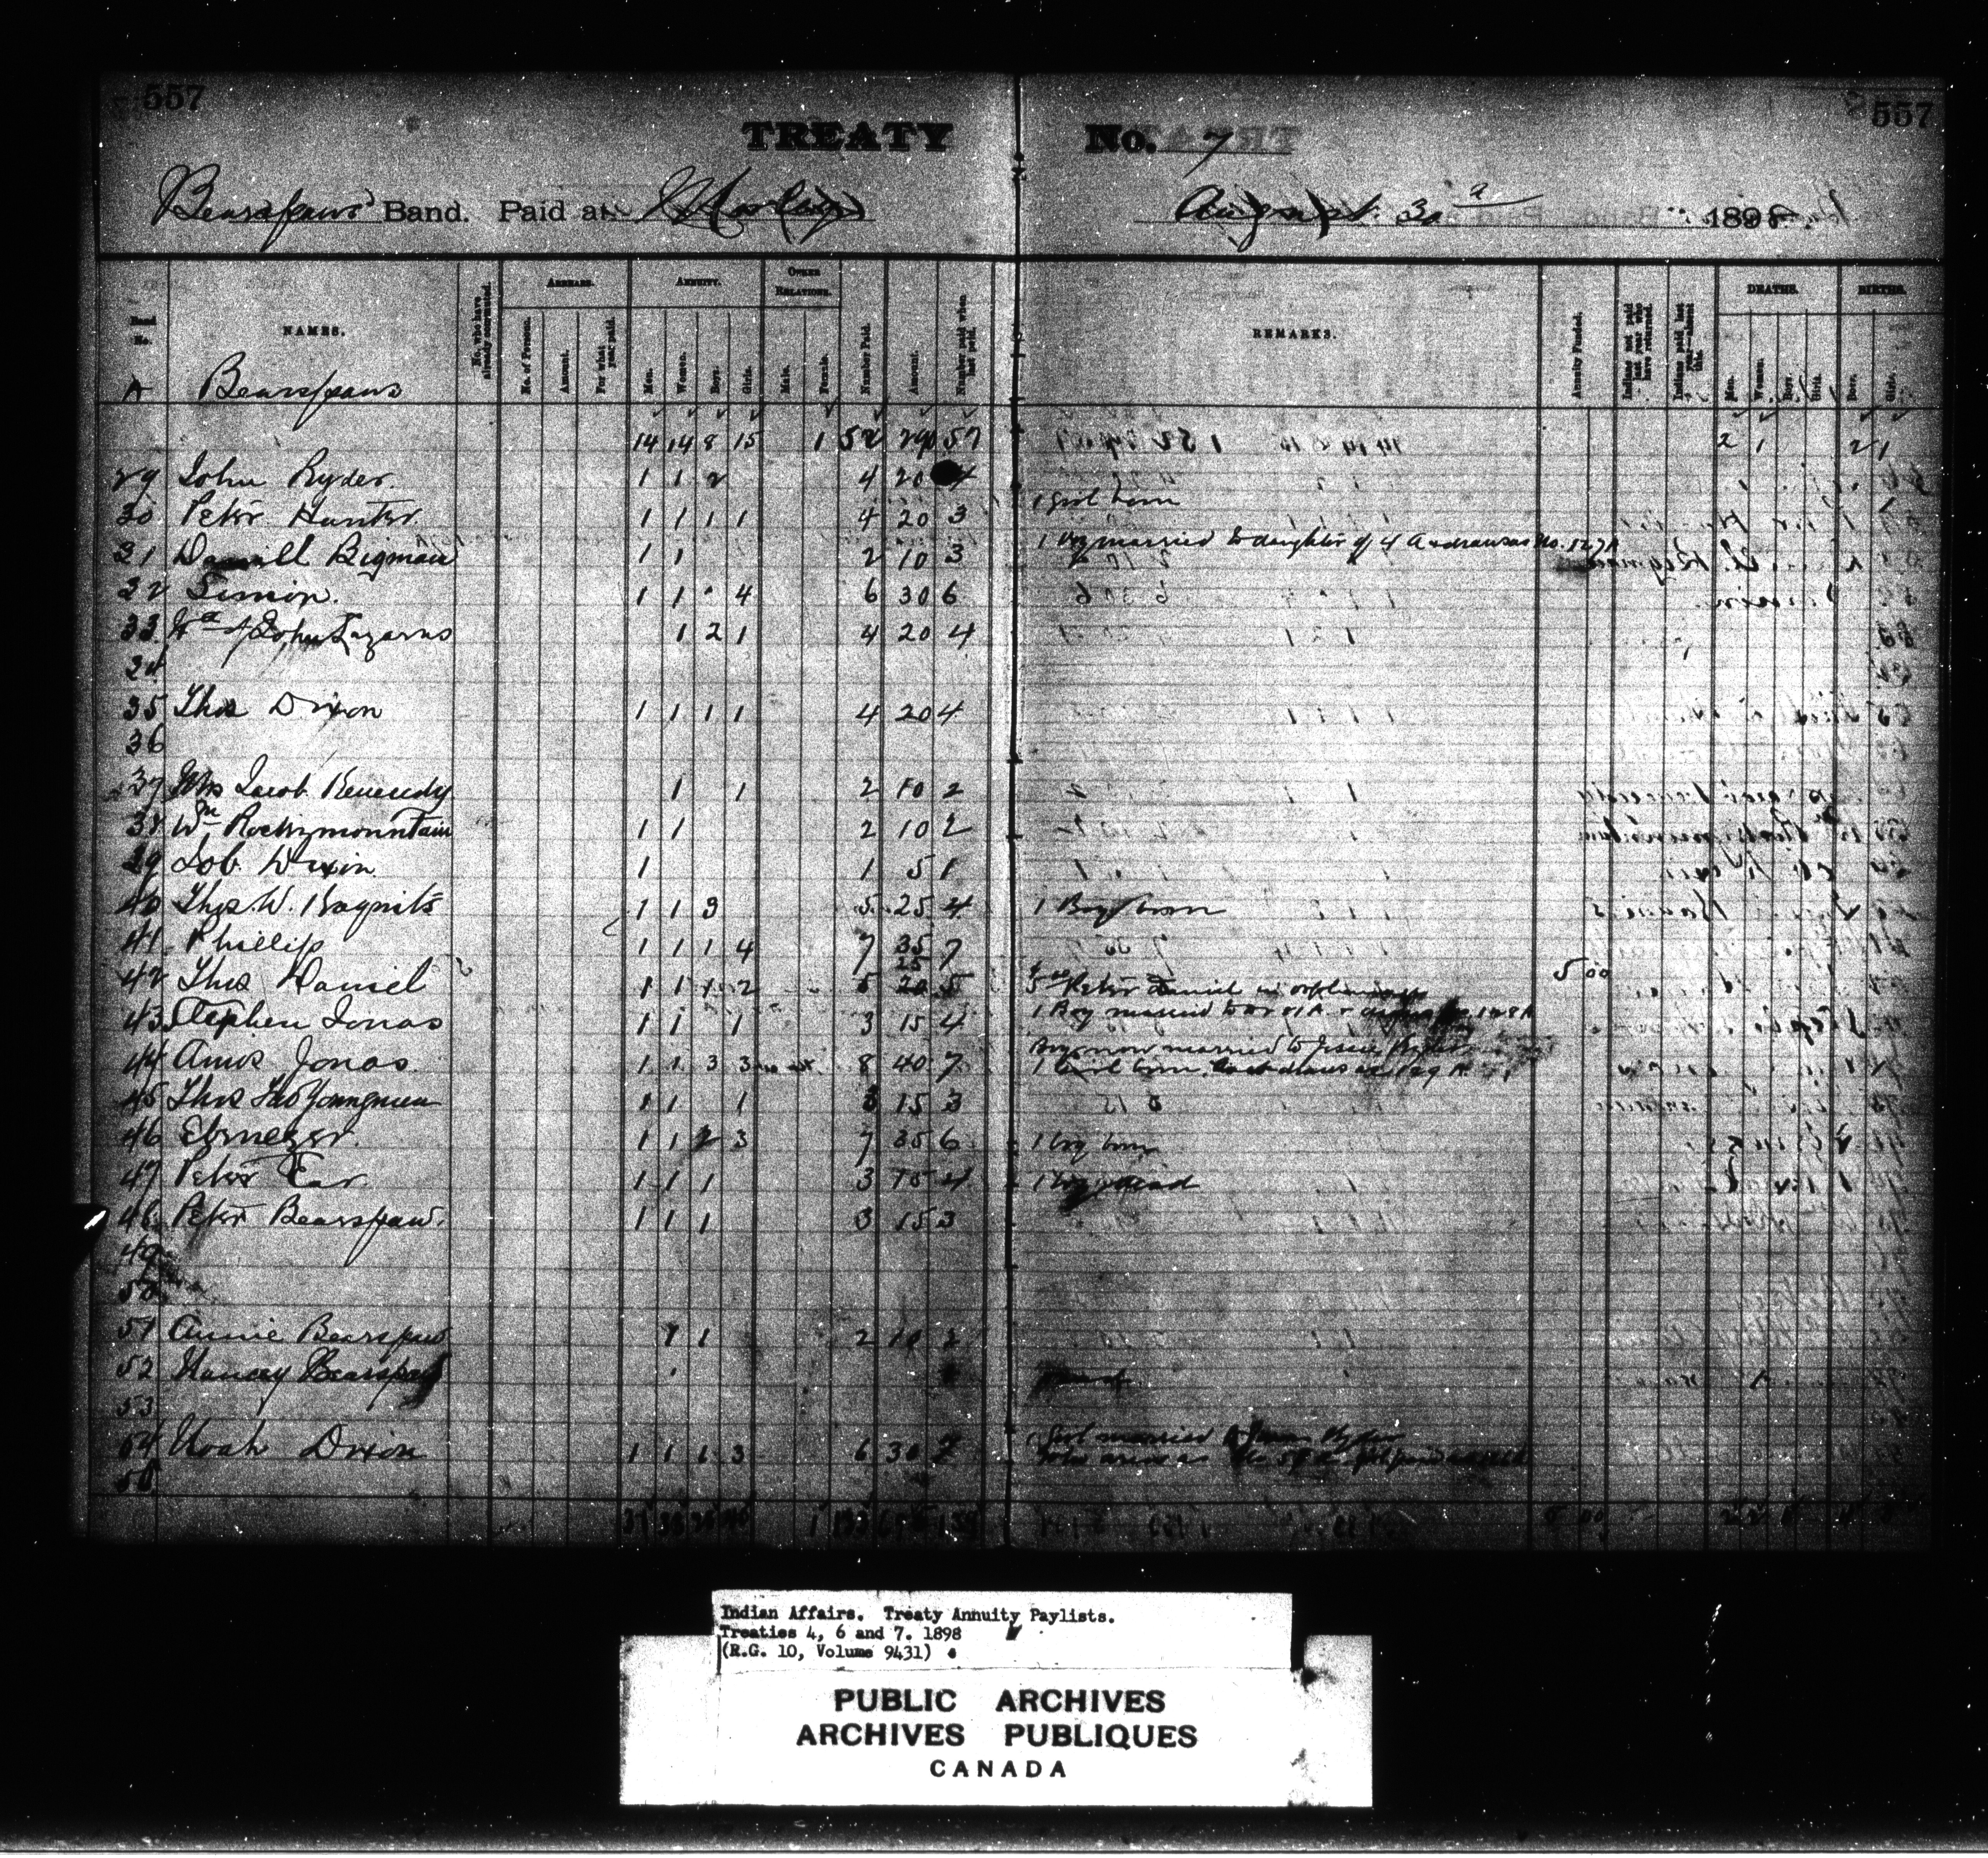 557 557
TREATY No. 7
Bearspaws Band. Paid at Morley August 30 1898.
ARREARS. ANNUITY. OTHER RELATIONS. DEATHS. BIRTHS.
No. NAMES. No. who have already commuted. No. of Persons. Amount. For what year paid. Men. Women. Boys. Girls. Male. Female. Number Paid. Amount. Number paid when last paid. REMARKS. Annuity Funded. Indians not paid last year who have returned. Indians paid last year—absent this. Men. Women. Boys. Girls. Boys. Girls.
A Bearspaws
14 14 8 15 1 52 57 2 1 2 1
29 John Ryder. 1 1 2 4 20 4
30 Peter Hunter. 1 1 1 1 4 20 3 1 Girl born 1
31 Bigman 1 1 2 10 3 1 boy married to daughter of
32 Simon. 1 1 4 6 30 6
33 Wd of John Lazarus 1 2 1 4 20 4
34
35 Thos Dixon 1 1 1 1 4 20 4
36
37 Mrs Jacob Kenendy 1 1 2 10 2
38 Wm Rockymountain 1 1 2 10 2
39 Job Dixon 1 1 5 1
40 Thos W. 1 1 3 5 25 4 1 Boy born
41 Phillip 1 1 1 4 7 35 7
42 Thos Daniel 1 1 1 2 5 5 Peter Daniel in orphanage 5 00
43 Stephen Jonas 1 1 1 3 15 4 1 Boy married to
44 Amos Jonas. 1 1 3 3 8 40 7 Boy now married to Ryder
1 Girl born
45 Thos Youngmen 1 1 1 3 15 3
46 Ebenezer. 1 1 2 3 7 35 6 1 boy born
47 Peter Ear. 1 1 1 3 15 4 1 boy dead
48 Peter Bearspaw. 1 1 1 3 15 3
49
50
51 Annie Bearspaw 1 1 2 10 2
52 Nancy Bearspaw
53
54 Noah Dixon 1 1 1 3 6 30 7 1 Girl married to Ryder
55
Indian Affairs. Treaty Annuity Paylists.
Treaties 4, 6 and 7. 1898
(R.G. 10, Volume 9431)
PUBLIC ARCHIVES
ARCHIVES PUBLIQUES
CANADA